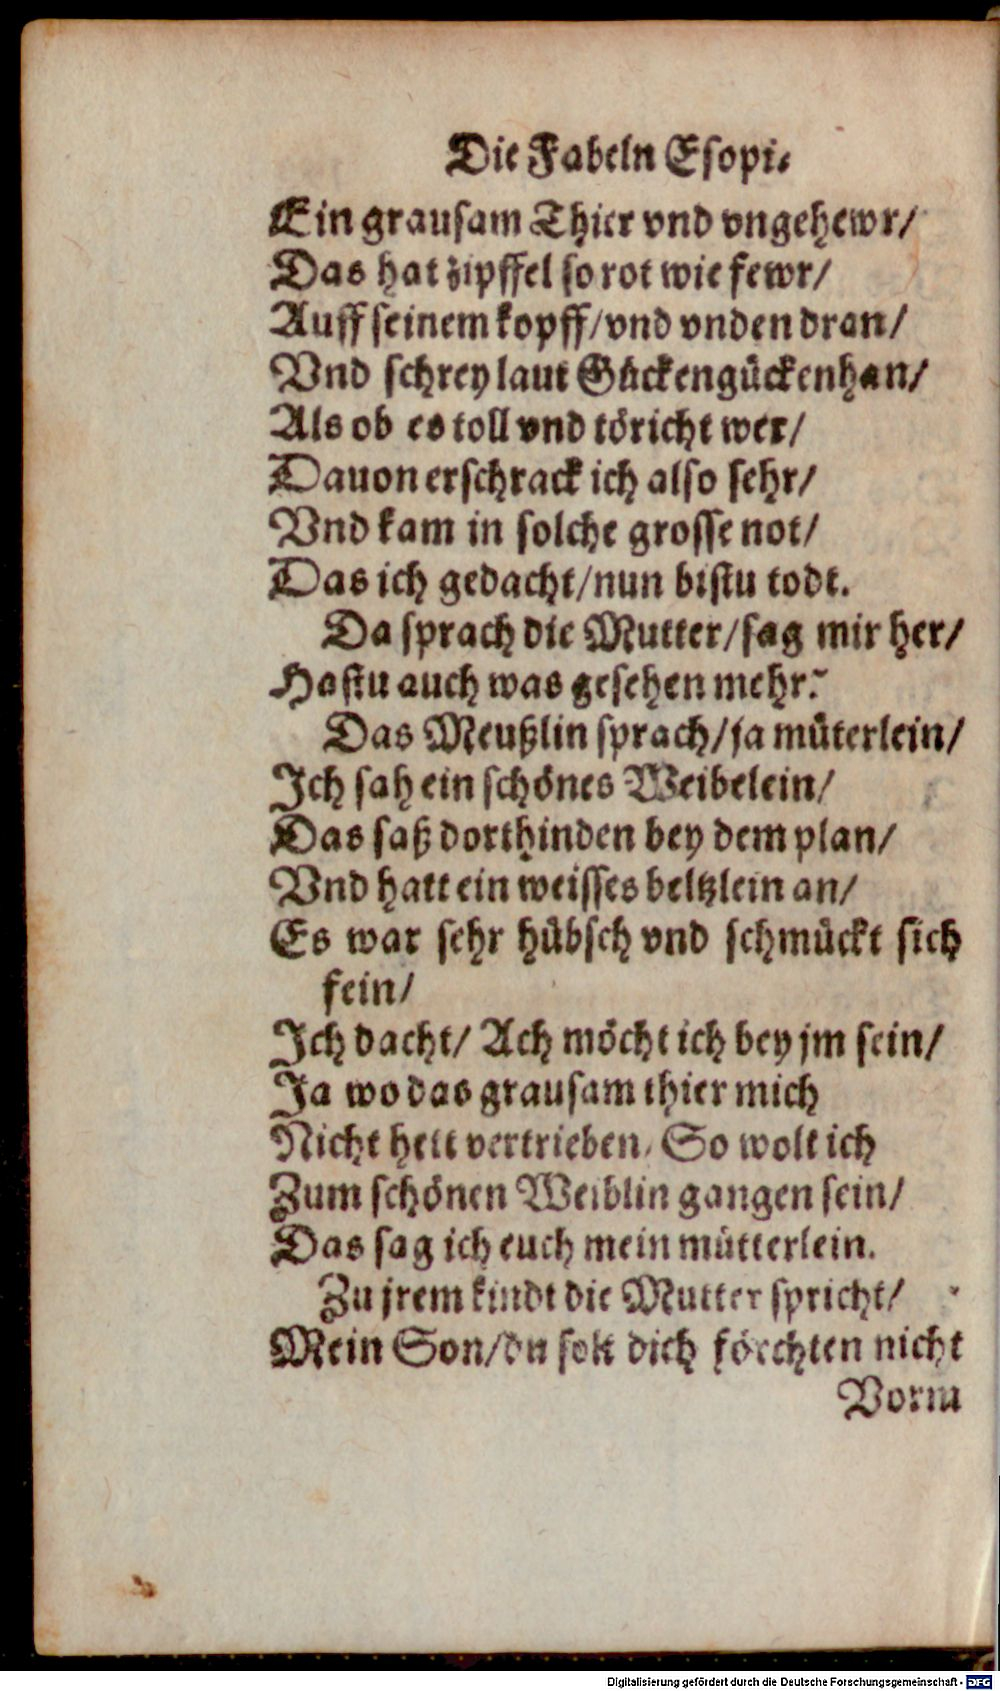 Die Fabeln Esopi.
Ein grausam Thier vnd vngehewr/
Das hat zipffel so rot wie fewr/
Auff seinem kopff/vnd vnden dran/
Vnd schrey laut Gückengückenhan/
Als ob es toll vnd töricht wer/
Dauon erschrack ich also sehr/
Vnd kam in solche grosse not/
Das ich gedacht/nun bistu todt.
Da sprach die Mutter/sag mir her/
Hastu auch was gesehen mehr?
Das Meußlin sprach/ja müterlein/
Ich sah ein schönes Weibelein/
Das saß dorthinden bey dem plan/
Vnd hatt ein weisses beltzlein an/
Es war sehr hübsch vnd schmückt sich
fein/
Ich dacht/ Ach möcht ich bey jm sein/
Ja wo das grausam thier mich
Nicht hett vertrieben, So wolt ich
Zum schönen Weiblin gangen sein/
Das sag ich euch mein mütterlein.
Zu jrem kindt die Mutter spricht/
Mein Son/du solt dich förchten nicht
Vorm
Digitalisierung gefördert durch die Deutsche Forschungsgemeinschaft - DFG